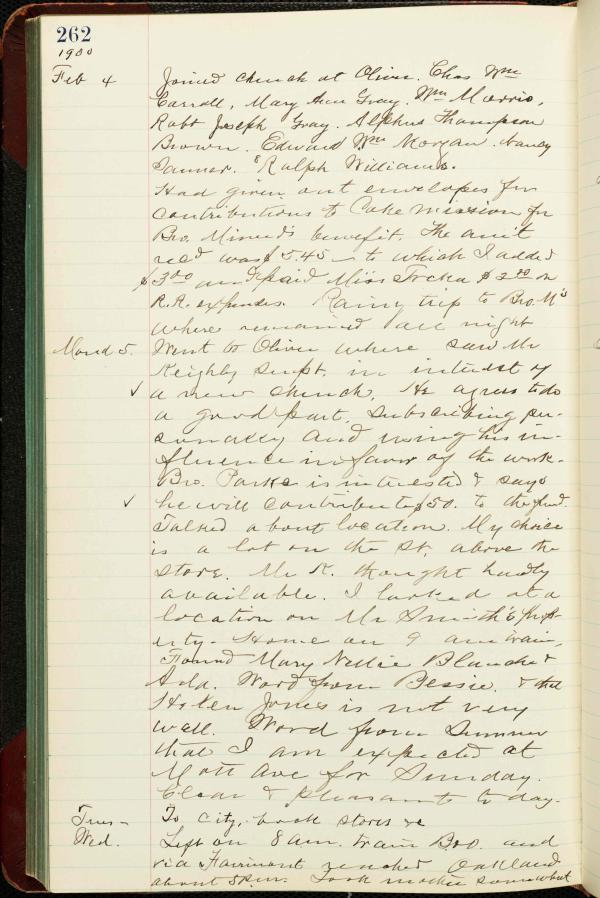 262
1900
Feb 4 Joined church at Oliver. Chas Wm
Carroll, Mary Ann Gray. Wm Morris,
Robt Joseph Gray. Alpheus Thompson
Brown. Edward Wm Morgan. Nancy
Tanner. & Ralph Williams.
Had given out envelopes for
contributions to Coke Mission for
Bro. Minerd's benefit. The am't
rec'd was $5.45 — to which I added
$3.00 and paid Miss $2.00 on
R.R. expenses. Rainy trip to Bro. M's
where remained all night
Mond 5. Went to Oliver where saw Mr
Keighly supt. in interest of
✓ a new church. He agrees to do
a good part, subscribing per-
sonally and using his in-
fluence in favor of the work.
Bro. Parks is interested & says
✓ he will contribute $50. to the fund.
Talked about location. My choice
is a lot on the St. above the
store. Mr K. thought hardly
available. I looked at a
location on Mr Smith's prop-
erty. Home on 9 am train.
Found Mary Nellie Blanche &
Ada. Word from Bessie. & that
Helen Jones is not very
well. Word from Sumner
that I am expected at
Mott Ave for Sunday.
Clear & pleasant to day.
Tues- To City, book stores &c
Wed. Left on 8 am. train B&O. and
via Fairmont reached Oakland
about 5 P.m. Took mother somewhat